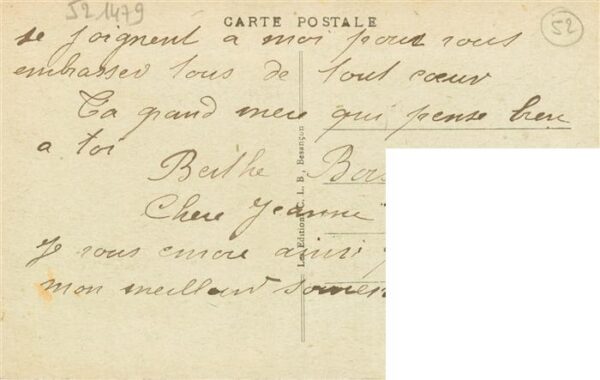 52 1479
CARTE POSTALE
52
se joignent a moi pour vous
embrasser tous de tout cœur
Ta grand mere qui pense bien
a toi
Berthe
Chere Jeanne
Je vous envoie ainsi
mon meilleur
Les Editions C. L. B., Besançon